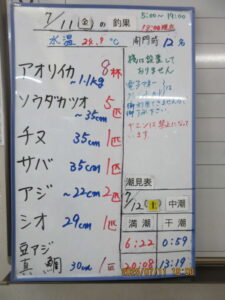 7/11(金)の釣果
5:00~19:00
17:00現在
水温 24.9℃
開門時 12名
アオリイカ ~1.1kg 8杯
ソウダカツオ ~35cm 5匹
チヌ 35cm 1匹
サバ 35cm 1匹
アジ ~22cm 2匹
シオ 29cm 1匹
豆アジ
真鯛 30cm 1匹
おりません
ヤエンは禁止になって
います
潮見表
7/12(土) 中潮
満潮 干潮
6:22 0:59
20:08 13:19